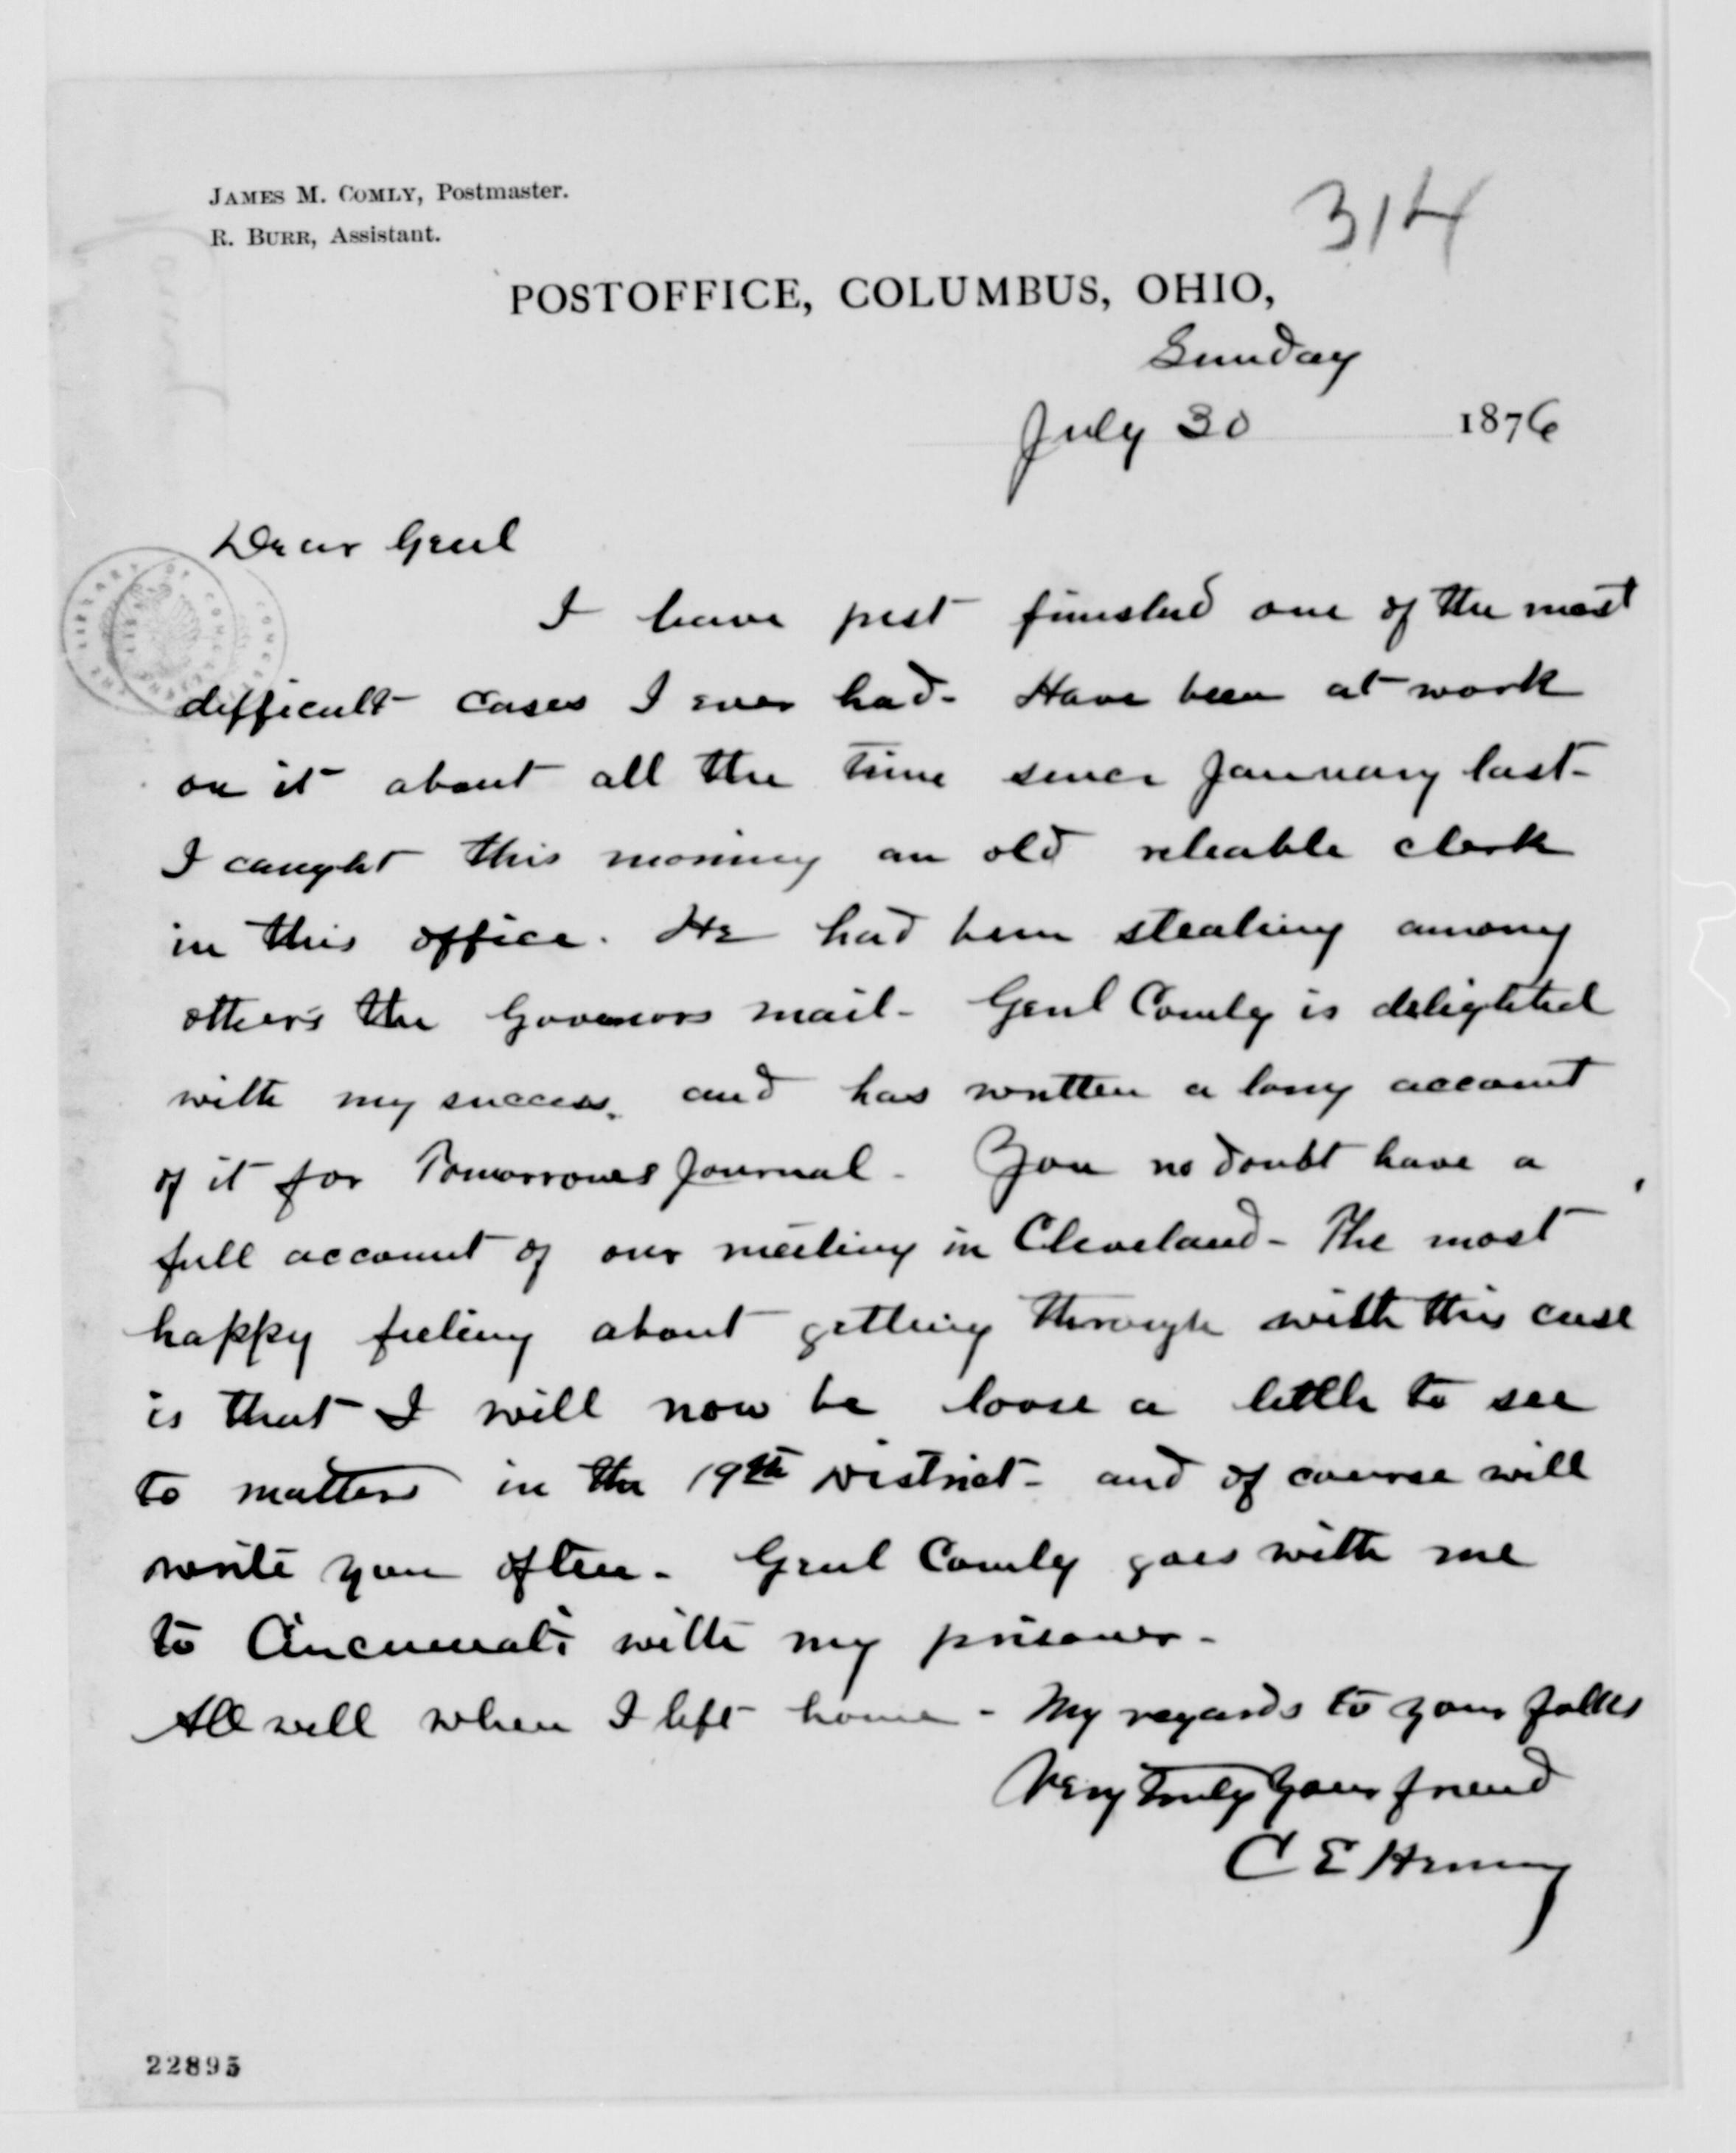 JAMES M. COMLY, Postmaster.
R. BURR, Assistant.
314
POSTOFFICE, COLUMBUS, OHIO,
Sunday
July 30 1876
Dear Genl
I have just finished one of the most
difficult cases I ever had - Have been at work
on it about all the time since January last -
I caught this morning an old reliable clerk
in this office. He had been stealing among
others the Governors mail - Genl Comly is delighted
with my success. and has written a long account
of it for Tomorrows Journal - You no doubt have a
full account of our meeting in Cleveland - The most
happy feeling about getting through with this case
is that I will now be loose a little to see
to matters in the 19th District - and of course will
write you often - Genl Comly goes with me
to Cincinnati with my prisoner -
All well when I left home - My regards to your folks
Very truly your friend
C E Henry
22895